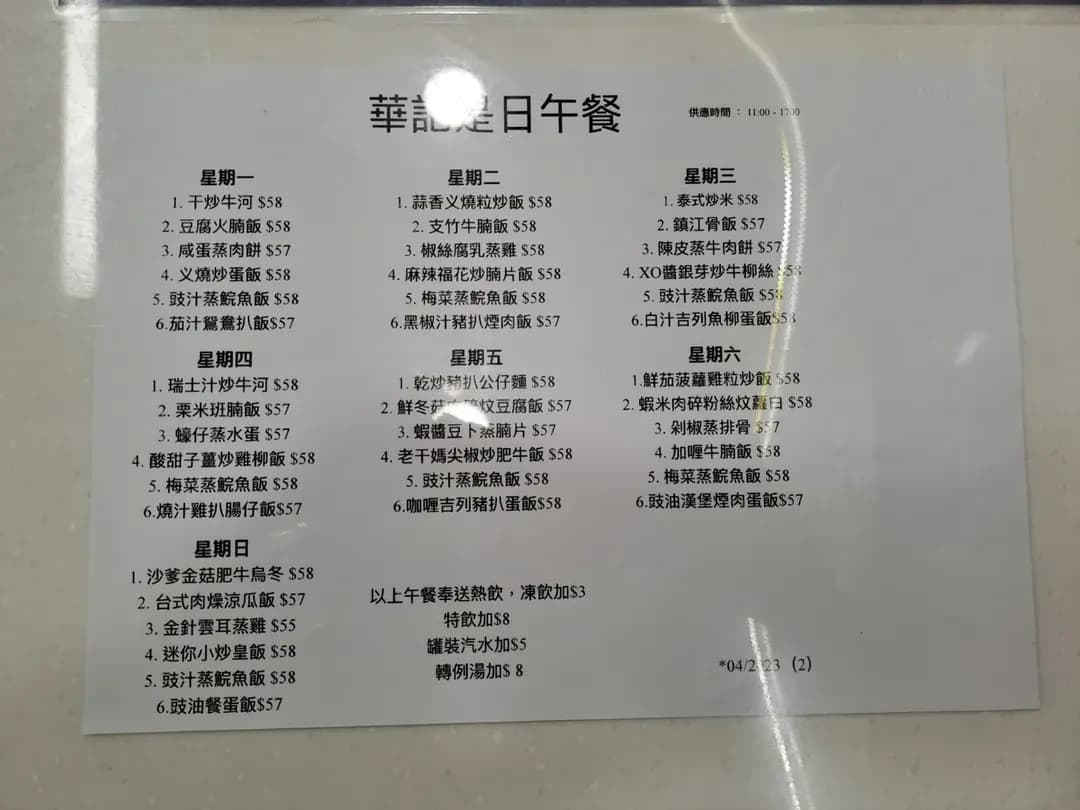 華記是日午餐
供應時間 : 11:00 - 1700
星期一
1. 干炒牛河 $58
2. 豆腐火腩飯 $58
3. 咸蛋蒸肉餅 $57
4. 义燒炒蛋飯 $58
5. 豉汁蒸鯇魚飯 $58
6.茄汁鴛鴦扒飯$57
星期二
1. 蒜香义燒粒炒飯 $58
2. 支竹牛腩飯 $58
3. 椒絲腐乳蒸雞 $58
4. 麻辣福花炒腩片飯 $58
5. 梅菜蒸鯇魚飯 $58
6.黑椒汁豬扒煙肉飯 $57
星期三
1. 泰式炒米 $58
2. 鎮江骨飯 $57
3. 陳皮蒸牛肉餅 $57
4. XO醬銀芽炒牛柳絲 $58
5. 豉汁蒸鯇魚飯 $58
6.白汁吉列魚柳蛋飯$58
星期四
1. 瑞士汁炒牛河 $58
2. 栗米班腩飯 $57
3. 蠔仔蒸水蛋 $57
4. 酸甜子薑炒雞柳飯 $58
5. 梅菜蒸鯇魚飯 $58
6.燒汁雞扒腸仔飯$57
星期五
1. 乾炒豬扒公仔麵 $58
2. 鮮冬菇肉碎炆豆腐飯 $57
3. 蝦醬豆卜蒸腩片 $57
4. 老干媽尖椒炒肥牛飯 $58
5. 豉汁蒸鯇魚飯 $58
6.咖喱吉列豬扒蛋飯$58
星期六
1.鮮茄菠蘿雞粒炒飯 $58
2. 蝦米肉碎粉絲炆蘿白 $58
3. 剁椒蒸排骨 $57
4. 加喱牛腩飯 $58
5. 梅菜蒸鯇魚飯 $58
6.豉油漢堡煙肉蛋飯$57
星期日
1. 沙爹金菇肥牛烏冬 $58
2. 台式肉燥涼瓜飯 $57
3. 金針雲耳蒸雞 $55
4. 迷你小炒皇飯 $58
5. 豉汁蒸鯇魚飯 $58
6.豉油餐蛋飯$57
以上午餐奉送熱飲，凍飲加$3
特飲加$8
罐裝汽水加$5
轉例湯加$ 8
(2)